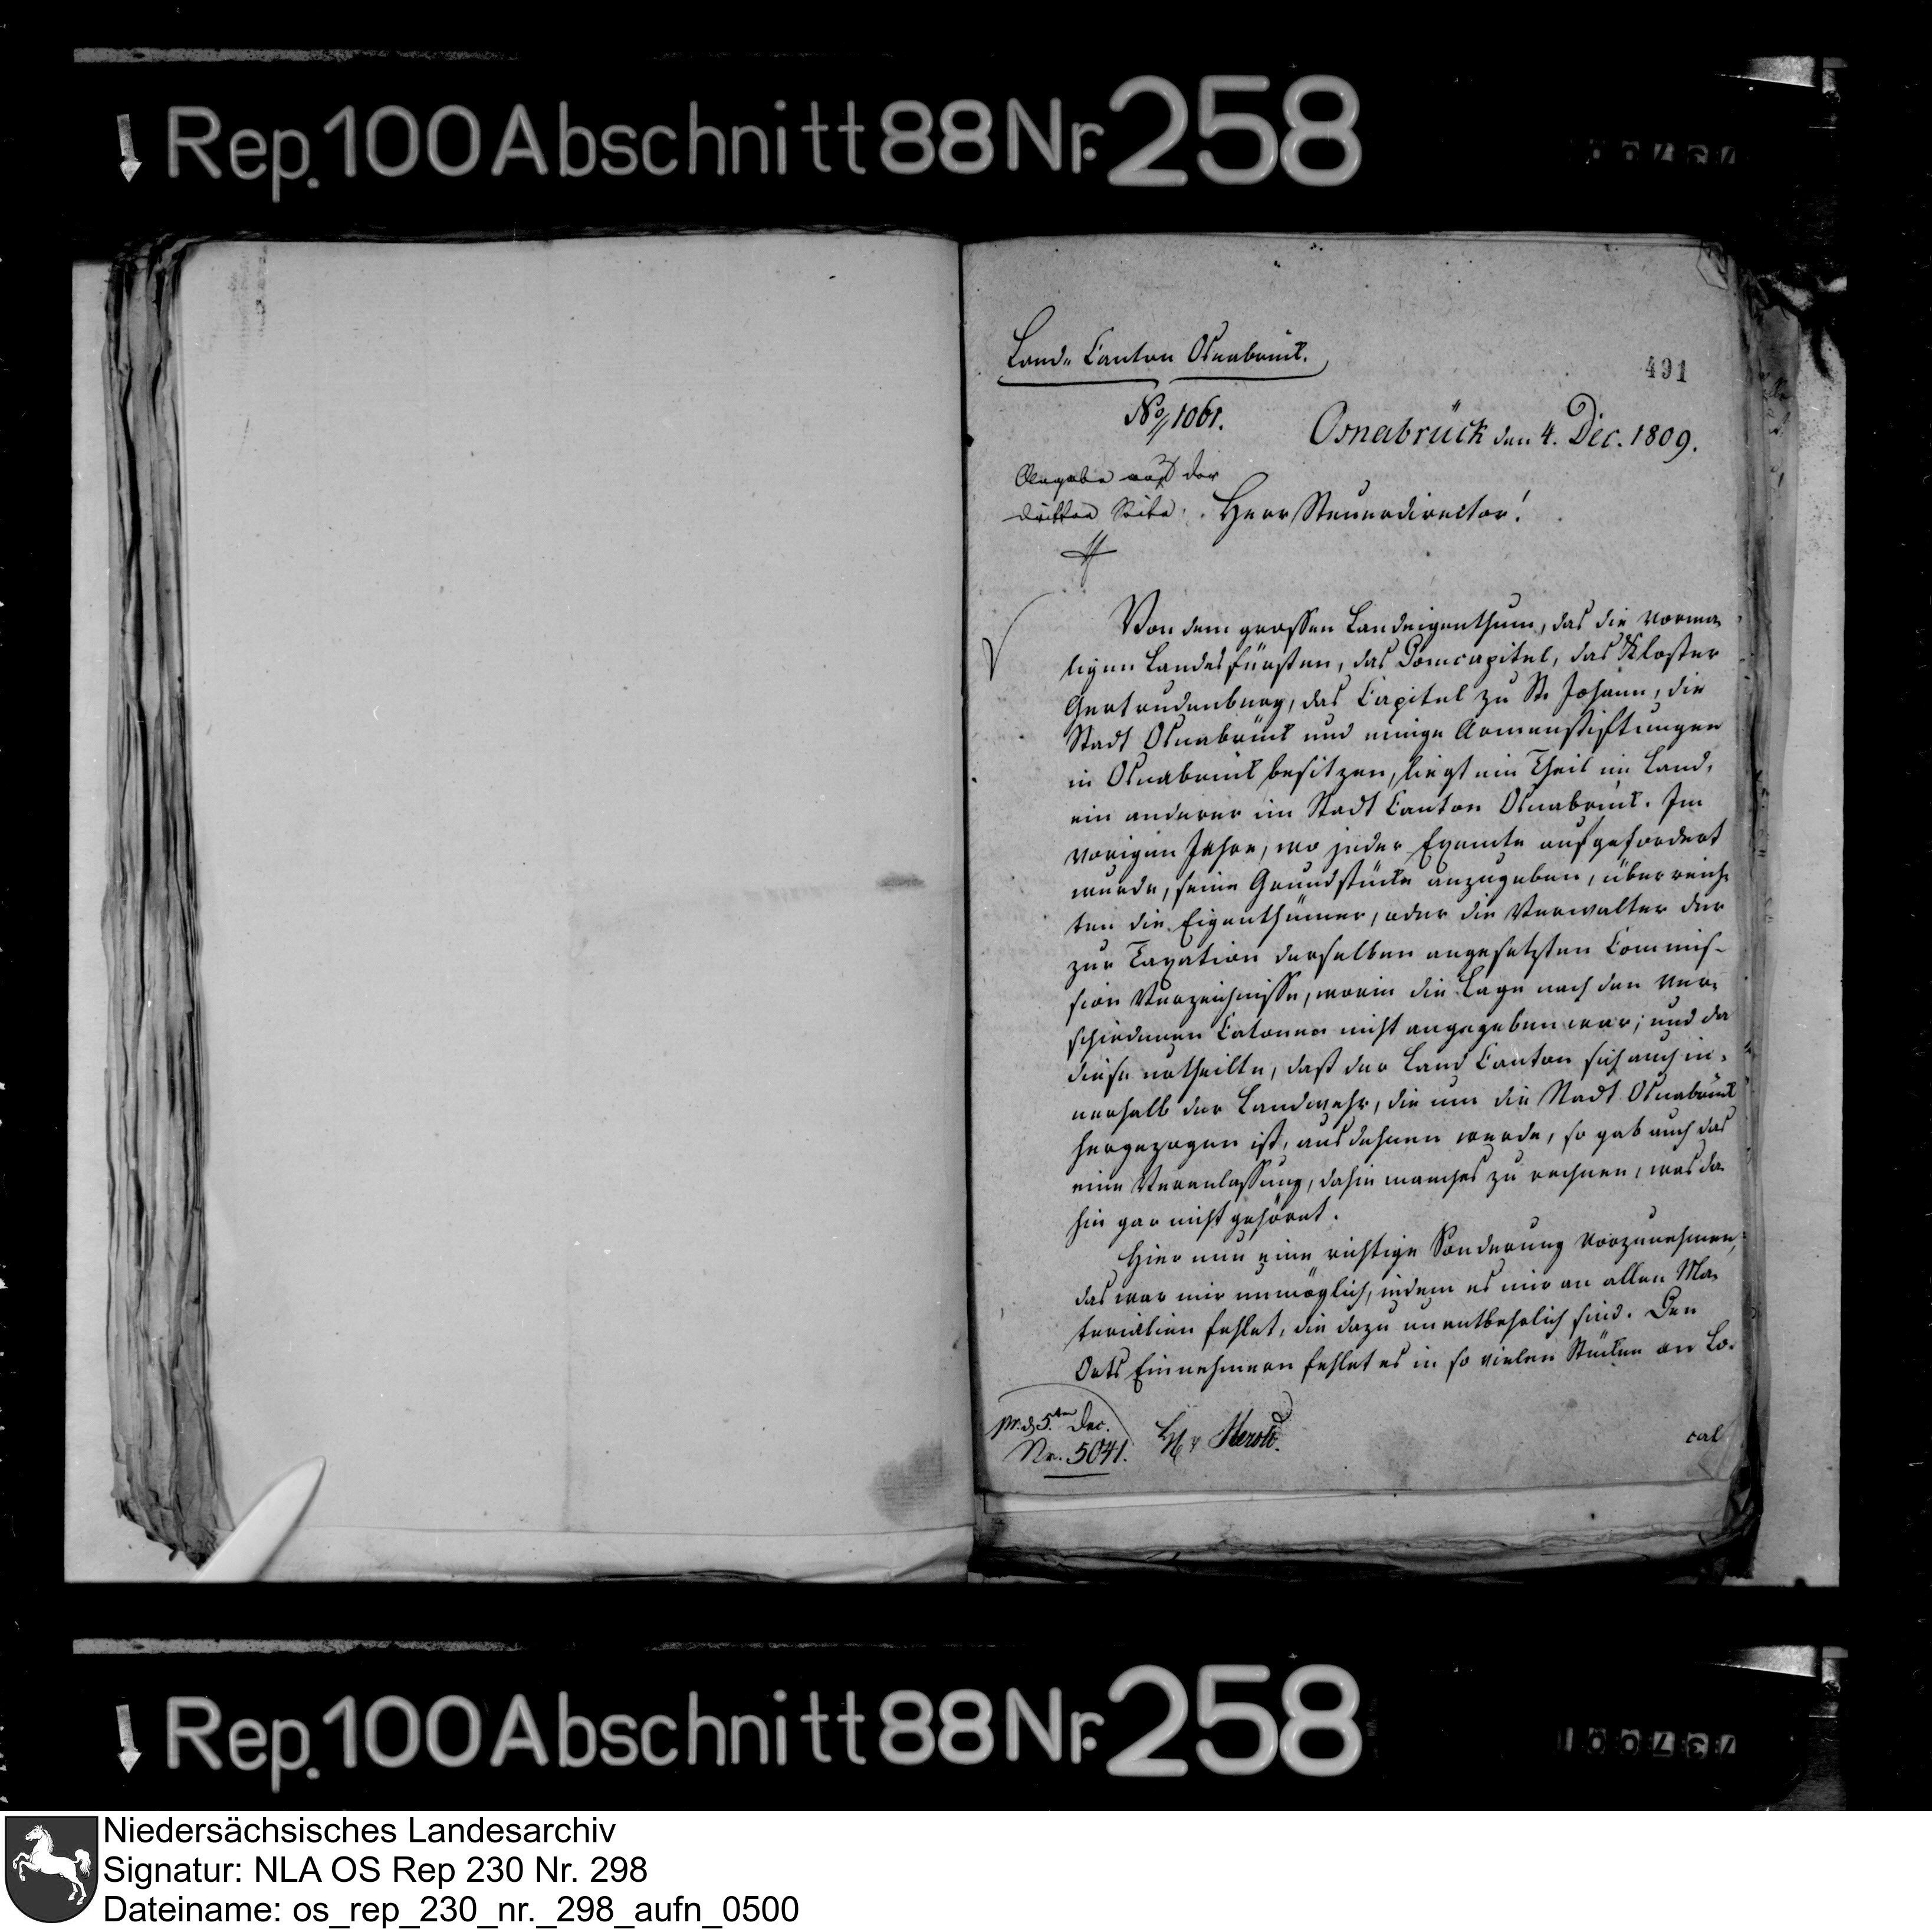 Rep. 100 Abschnitt 88 Nr. 258
Land- Canton Osnabrück.
491
No 1061.
Osnabrück den 4. Dec. 1809.
Angabe auf der
dritten Seite.
Herr Steuerdirector!
Von dem grossen Landeigenthum, das die vorma-
ligen Landesfürsten, das Domcapitel, das Kloster
Gertrudenburg, das Capitel zu St. Johann, die
Stadt Osnabrück und einige Armenstiftungen
in Osnabrück besitzen, liegt ein Theil im Land,
ein anderer im Stadt Canton Osnabrück. Im
vorigen Jahre, wo jeder Exemte aufgefordert
wurde, seine Grundstücke anzugeben, überreich-
ten die Eigenthümer, oder die Verwalter der
zur Taxation derselben angesetzten Commis-
sion Verzeichnisse, worin die Lage nach den ver-
schiedenen Catonen nicht angegeben war; und da
diese urtheilte, daß der Land Canton sich auch in-
nerhalb der Landwehr, die um die Stadt Osnabrück
hergezogen ist, ausdehnen werde, so gab auch das
eine Veranlassung, dahin manches zu rechnen, was da-
hin gar nicht gehöret.
Hier nun eine richtige Sonderung vorzunehmen,
das war mir unmöglich, indem es mir an allen Ma-
terialien fehlet, die dazu unentbehrlich sind. Den
Orts Einnehmern fehlet es in so vielen Stücken an Lo-
pr. d. 5ten Dec.
Nr. 5041.
Herold.
cal
Rep. 100 Abschnitt 88 Nr. 258
Niedersächsisches Landesarchiv
Signatur: NLA OS Rep 230 Nr. 298
Dateiname: os_rep_230_nr._298_aufn_0500